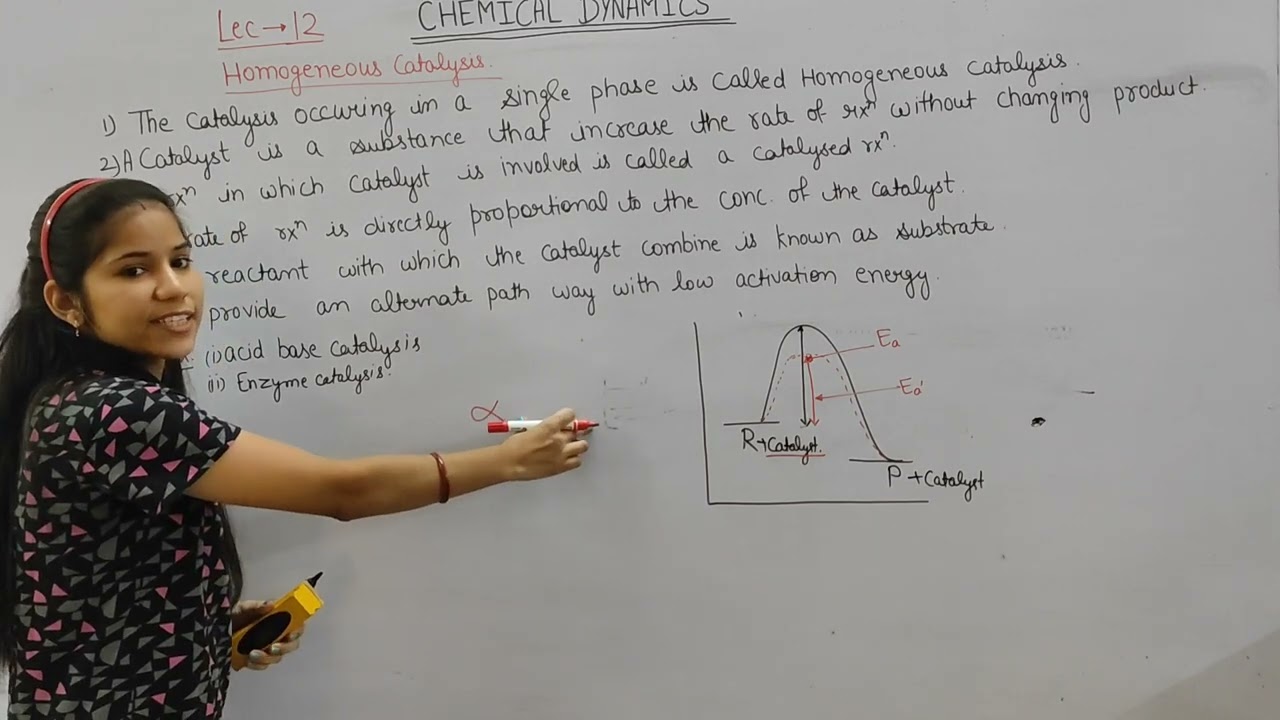 Lec→12
CHEMICAL DYNAMICS
Homogeneous Catalysis.
1) The Catalysis occuring in a single phase is called Homogeneous catalysis.
2) A Catalyst is a substance that increase the rate of rxⁿ without changing product.
rxⁿ in which catalyst is involved is called a catalysed rxⁿ.
rate of rxⁿ is directly proportional to the conc. of the catalyst.
reactant with which the catalyst combine is known as substrate.
provide an alternate path way with low activation energy.
(i) acid base catalysis
(ii) Enzyme catalysis.
∝
Ea
Ea'
R+Catalyst.
P + Catalyst